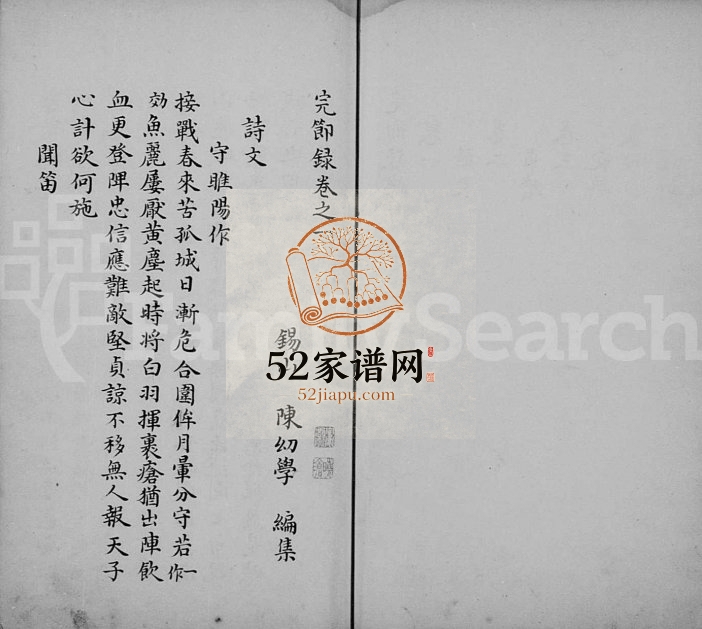 完節録卷之
錫 陳幼學 編集
詩文
守睢陽作
接戰春來苦孤城日漸危合圍侔月暈分守若一作
効魚麗屢厭黄塵起時将白羽揮裹瘡猶出陣飲
血更登陴忠信應難敵堅貞諒不移無人報天子
心計欲何施
聞笛
FamilySearch
52家谱网
52jiapu.com